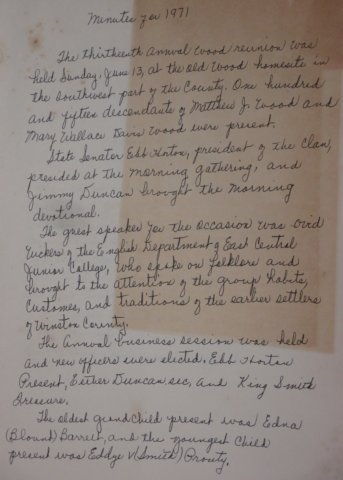 Minutes for 1971
The thirteenth Annual Wood reunion was
held Sunday, June 13, at the old Wood homesite in
the Southwest part of the County. One hundred
and fifteen descendants of Matthew J. Wood and
Mary Wallace Davis Wood were present.
State Senator Ebb Horton, president of the clan,
presided at the morning gathering, and
Jimmy Duncan brought the morning
devotional.
The great speaker for the occasion was Ovid
Vickers of the English Department of East Central
Junior College, who spoke on folklore and
brought to the attention of the group Habits,
Customes, and traditions of the earlier settlers
of Winston County.
The Annual business session was held
and new officers were elected. Ebb Horton
Present, Esther Duncan sec, and King Smith
Treasure.
The oldest grandchild present was Edna
(Blount) Barrett, and the youngest child
present was Eddye N (Smith) Prouty.